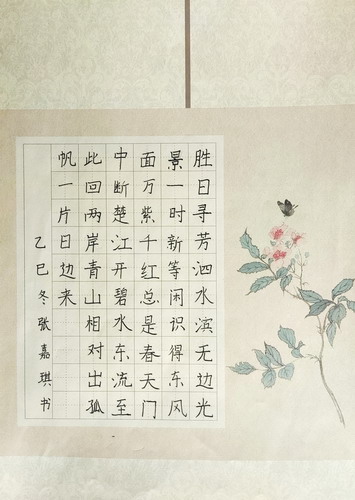 胜日寻芳泗水滨无边光
景一时新等闲识得东风
面万紫千红总是春天门
中断楚江开碧水东流至
此回两岸青山相对出孤
帆一片日边来
乙巳冬张嘉琪书